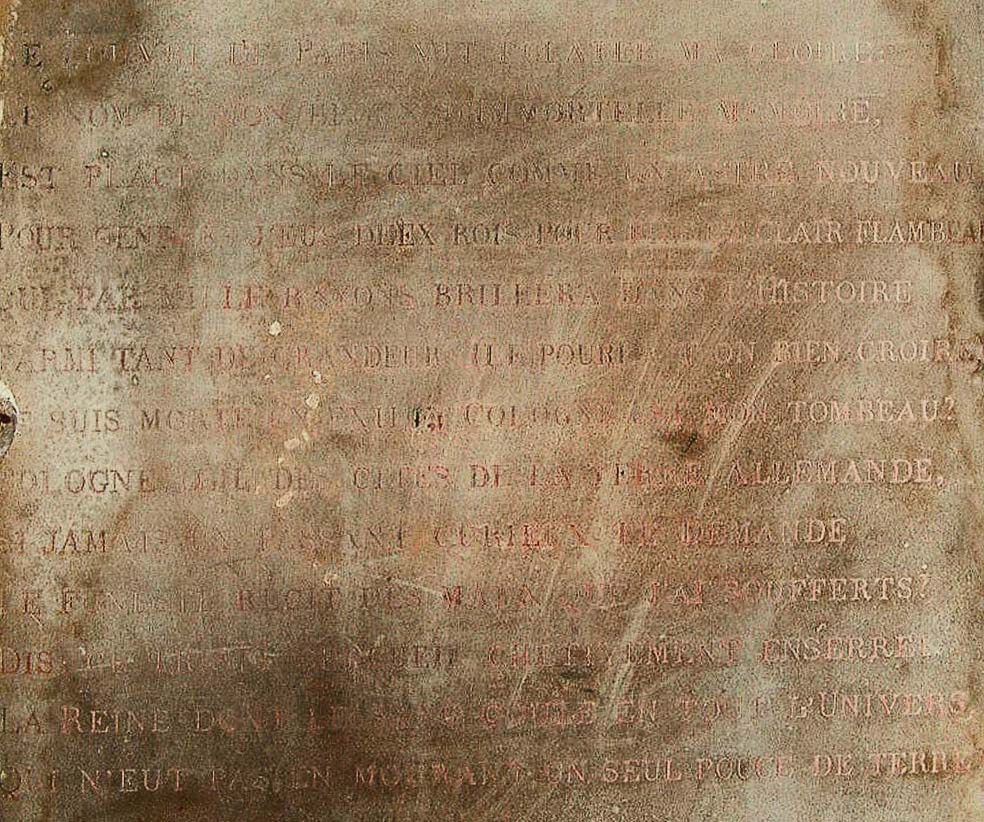 LE LOUVRE DE PARIS VIT ECLATER MA GLOIRE:
LE NOM DE MON IMMORTELLE MEMOIRE,
EST PLACE DANS LE CIEL COMME UN ASTRE NOUVEAU
POUR GENDRES J'EUS DEUX ROIS POUR CLAIR FLAMBEAU
QUI PAR MILLE RAYONS BRILLERA DANS L'HISTOIRE
PARMI TANT DE GRANDEUR ILE POURRA T'ON BIEN CROIRE,
JE SUIS MORTE EN EXIL: COLOGNE EST MON TOMBEAU?
COLOGNE OEIL DES CITES DE LA TERRE ALLEMANDE,
SI JAMAIS UN PASSANT CURIEUX TE DEMANDE
LE FUNESTE RECIT DES MAUX QUE J'AI SOUFFERTS?
DIS CE TRISTE CERCUEIL CHETIVEMENT ENSERRE
LA REINE DONT LE SANG COULE EN TOUT L'UNIVERS,
QUI N'EUT PAS EN MOURANT UN SEUL POUCE DE TERRE